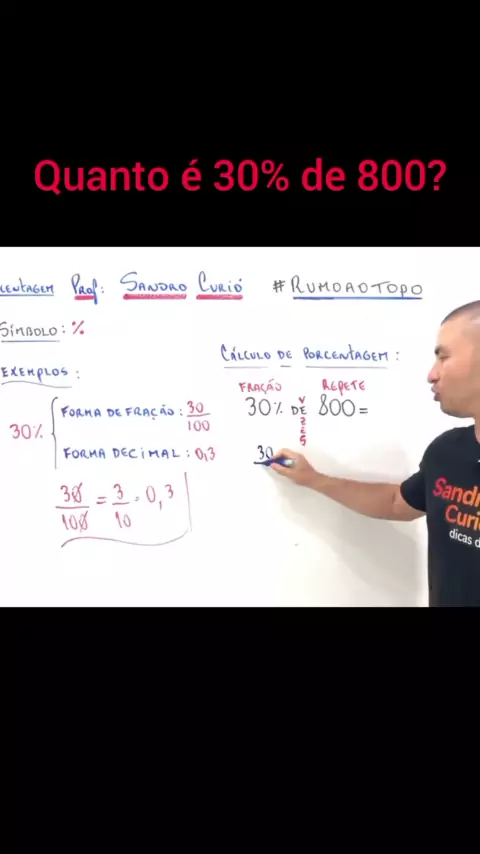 Quanto é 30% de 800?
CENTAGEM Prof: SANDRO CURIÓ #RUMOAOTOPO
SÍMBOLO: %
CÁLCULO DE PORCENTAGEM:
EXEMPLOS:
FRAÇÃO REPETE
30% DE 800 =
VEZES
30% FORMA DE FRAÇÃO: 30/100
FORMA DECIMAL: 0,3
30
30/100 = 3/10 = 0,3
Sandr
Curi
dicas d